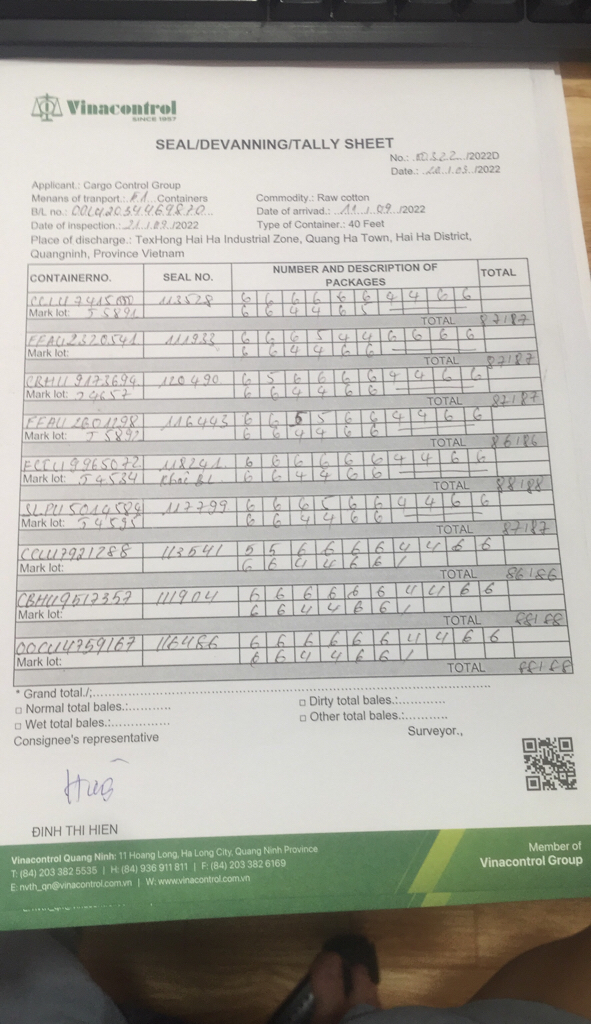 Vinacontrol
SINCE 1957
SEAL/DEVANNING/TALLY SHEET
No.: /2022D
Date.: /2022
Applicant.: Cargo Control Group
Menans of tranport.: Containers
Commodity.: Raw cotton
B/L no.:
Date of arrivad.: 11.09 /2022
Date of inspection.: 21.09 /2022
Type of Container.: 40 Feet
Place of discharge.: TexHong Hai Ha Industrial Zone, Quang Ha Town, Hai Ha District,
Quangninh, Province Vietnam
CONTAINERNO. SEAL NO. NUMBER AND DESCRIPTION OF PACKAGES TOTAL
113528 6 6 6 6 6 6 4 4 6 6
Mark lot: J5891 6 6 4 4 6 5
TOTAL 87187
FFAU2320541 111933 6 6 6 5 4 4 6 6 6 6
Mark lot: 6 6 4 4 6 6
TOTAL 87187
120490 6 5 6 6 6 6 4 4 6 6
Mark lot: J4657 6 6 4 4 6 6
TOTAL 87187
FFAU2601298 116443 6 6 5 5 6 6 4 4 6 6
Mark lot: 6 6 4 4 6 6
TOTAL 86186
118241 6 6 6 6 6 6 4 4 6 6
Mark lot: J4534 6 6 4 4 6 6
TOTAL 88188
117799 6 6 6 5 6 6 4 4 6 6
Mark lot: J4595 6 6 4 4 6 6
TOTAL 87187
CCLU7921288 113541 5 5 6 6 6 6 4 4 6 6
Mark lot: 6 6 4 4 6 6 /
TOTAL 86186
CBHU9517357 111904 6 6 6 6 6 6 4 4 6 6
Mark lot: 6 6 4 4 6 6 /
TOTAL 88188
OOCU4759167 116486 6 6 6 6 6 6 4 4 6 6
Mark lot: 6 6 4 4 6 6 /
TOTAL 88188
* Grand total./;
□ Normal total bales.:
□ Dirty total bales.:
□ Wet total bales.:
□ Other total bales.:
Consignee's representative
Surveyor.,
ĐINH THI HIEN
Vinacontrol Quang Ninh: 11 Hoang Long, Ha Long City, Quang Ninh Province
T: (84) 203 382 5535 | H: (84) 936 911 811 | F: (84) 203 382 6169
E: nvth_qn@vinacontrol.com.vn | W: www.vinacontrol.com.vn
Member of
Vinacontrol Group